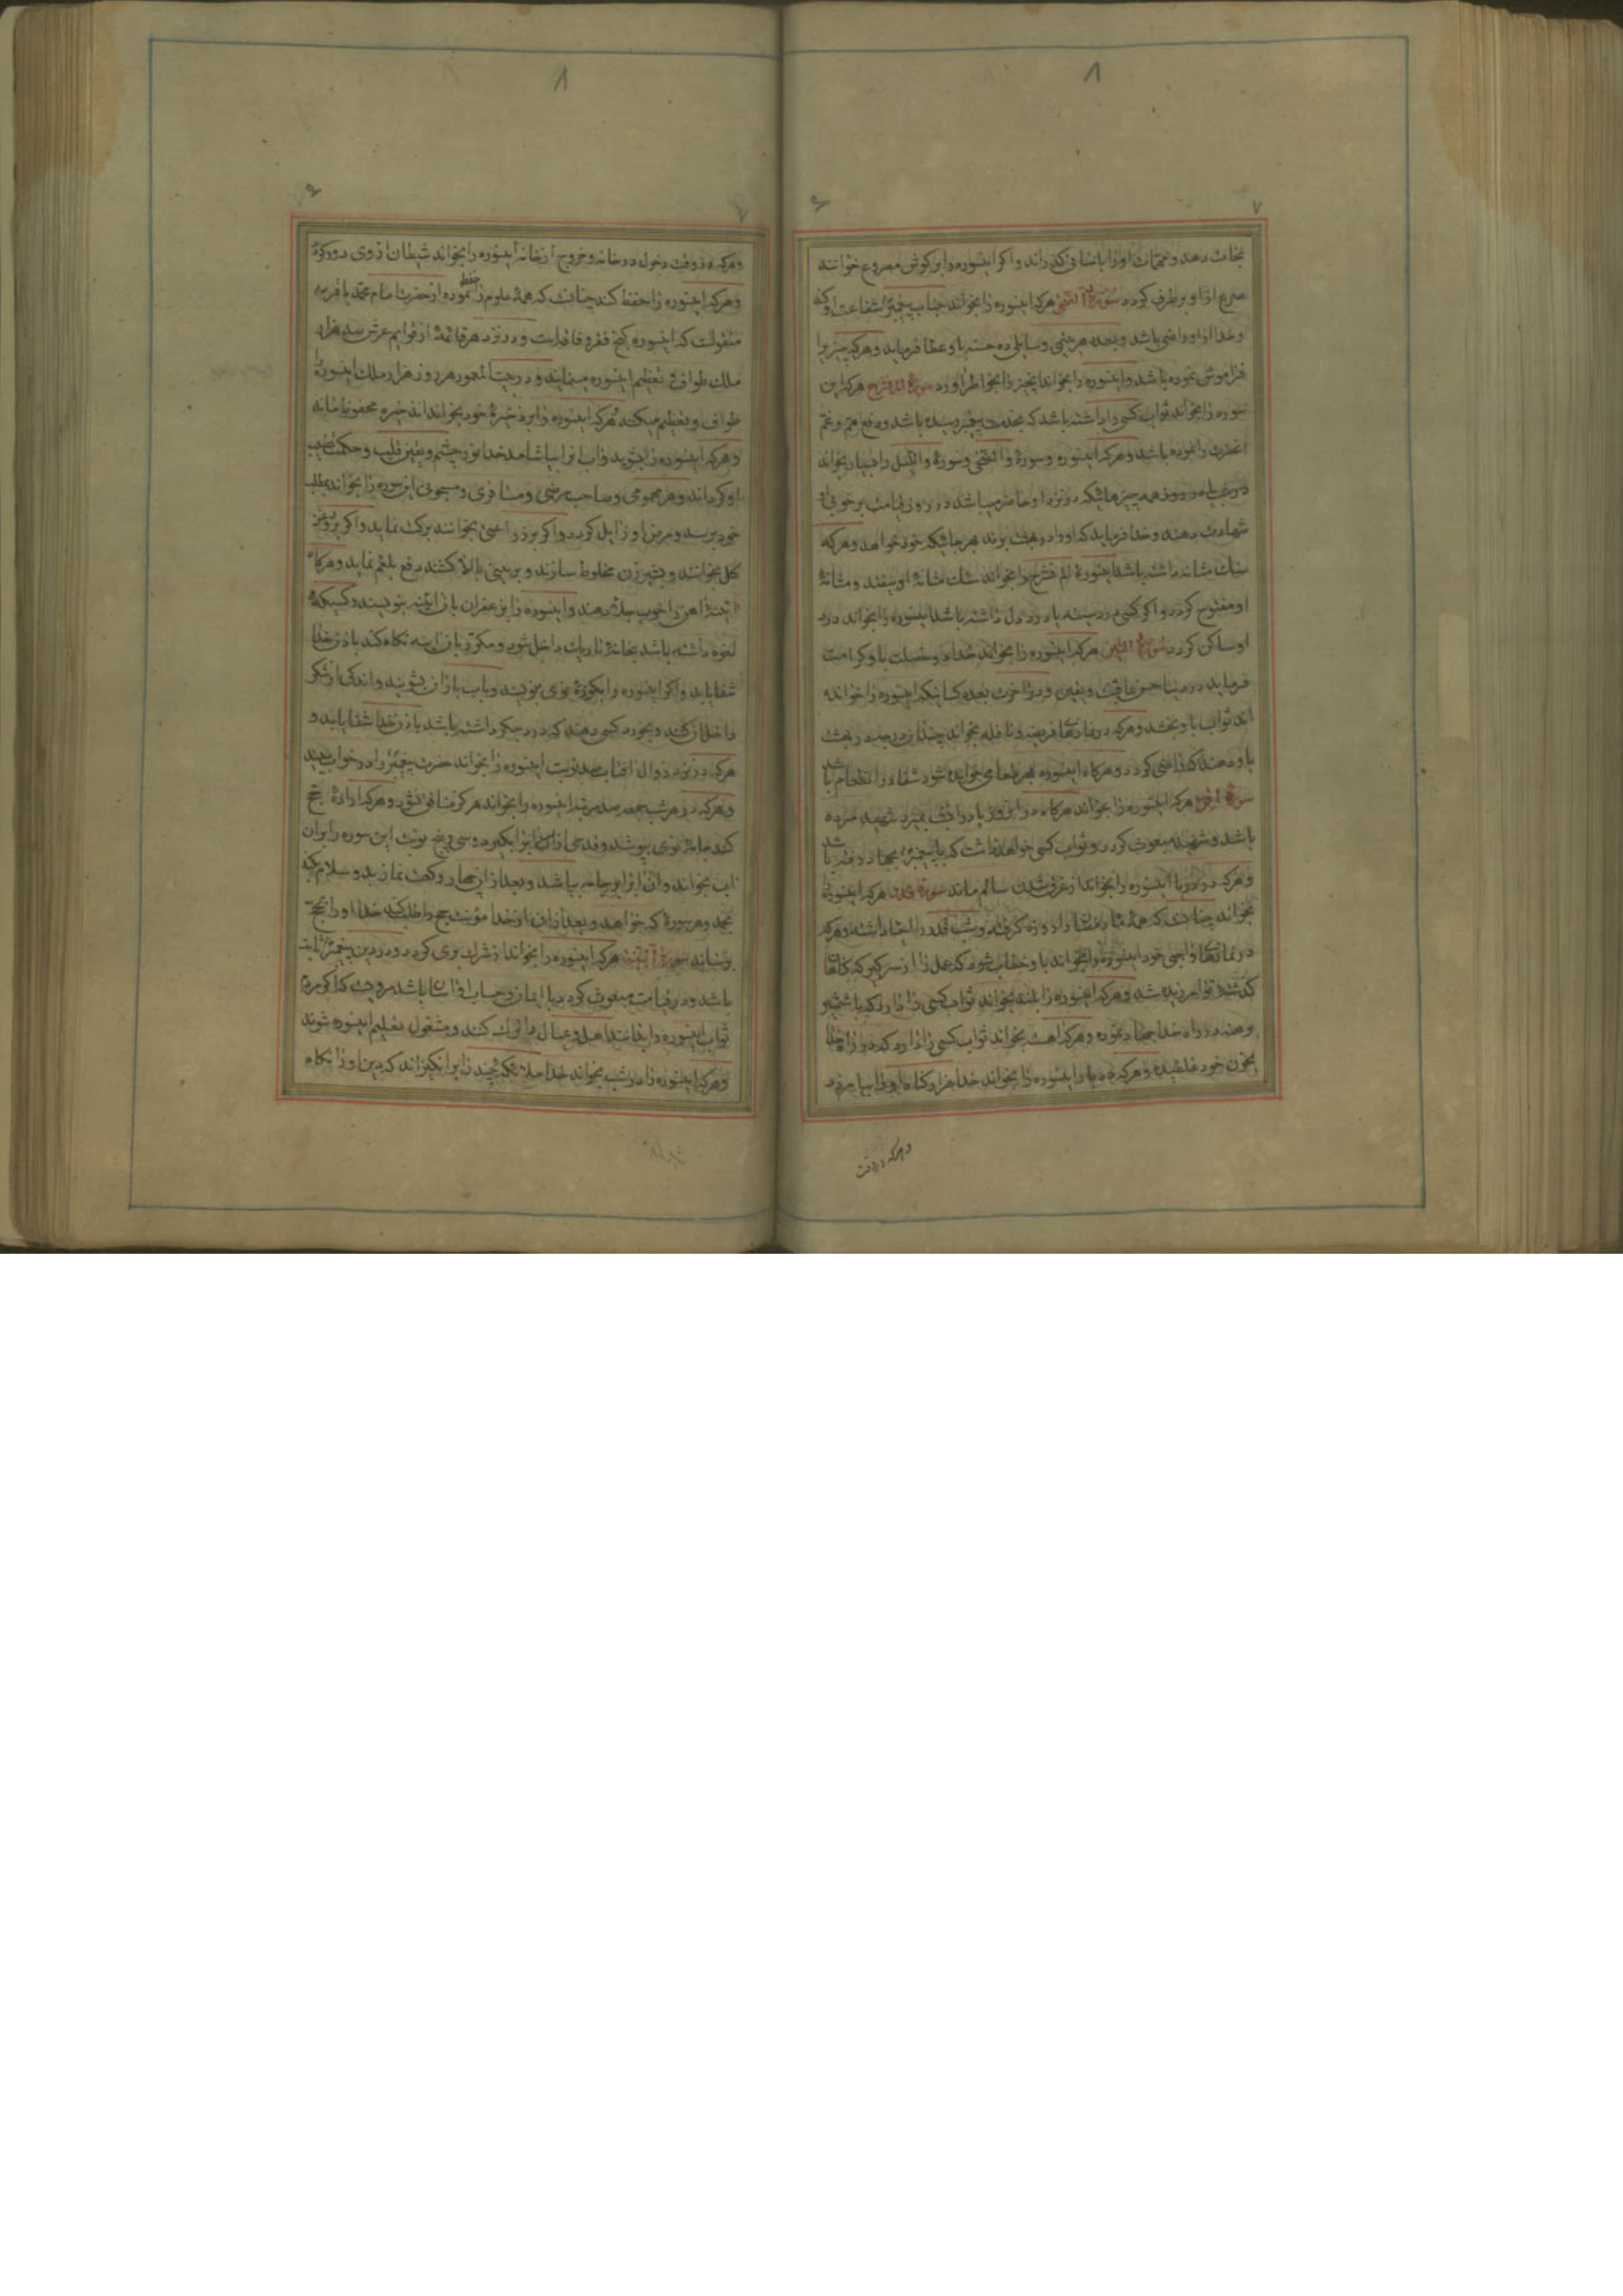 نجات دهد و مهمات او را باسانی گذراند و اگر اینسوره را بر گوش مصروع خوانند
صرع از او برطرف گردد سورة الضحی هر که اینسوره را بخواند جناب پیغمبر شفاعت او کند
و خدا از او راضی باشد و بعدد هر یتیمی و سایلی ده حسنه باو عطا فرماید و هر که چیزیرا
فراموش نموده باشد و اینسوره را بخواند آنچیز را بخاطر آورد سورة الم نشرح هر که این
سوره را بخواند ثواب کسی را داشته باشد که بخدمت پیغمبر رسیده باشد و رفع هم و غم
آنحضرت را نموده باشد و هر که اینسوره و سورهٔ والضحی و سورهٔ واللیل را بسیار بخواند
در شب یا در روز همه چیزهائیکه در نزد او حاضر میباشد در روز قیامت بر خوبی او
شهادت دهند و خدا فرماید که او را در بهشت برند هر جائیکه خود خواهد و هر که
سنک مثانه داشته باشد اینسورهٔ الم نشرح را بخواند سنک مثانهٔ او بیفتد و مثانهٔ
او مفتوح گردد و اگر کسی درد سینه یا درد دل داشته باشد اینسوره را بخواند درد
او ساکن گردد سورة التین هر که اینسوره را بخواند خدا دو خصلت باو کرامت
فرماید در دنیا حسن عاقبت و یقین و در آخرت بعدد کسانیکه اینسوره را خوانده
اند ثواب باو بخشد و هر که در نمازهای فریضه و نافله بخواند چندان درجه در بهشت
باو دهند که راضی گردد و هرگاه اینسوره بهر طعامی خوانده شود شفاء در آنطعام باشد
سورة اقرء هر که اینسوره را بخواند هرگاه در آنروز یا در آنشب بمیرد شهید مرده
باشد و شهید مبعوث گردد و ثواب کسی خواهد داشت که با پیغمبر بجهاد رفته باشد
و هر که در دریا اینسوره را بخواند از غرق شدن سالم ماند سورة قدر هر که اینسوره
بخواند چنانست که همهٔ ماه رمضان را روزه گرفته و شب قدر را احیا داشته و هر که
در نمازهای واجبی خود اینسوره را بخواند باو خطاب شود که عمل را از سر گیر که گناهان
گذشتهٔ تو آمرزیده شد و هر که اینسوره را بلند بخواند ثواب کسی را دارد که با شمشیر
برهنه در راه خدا جهاد نموده و هر که آهسته بخواند ثواب کسی را دارد که در راه خدا
بخون خود غلطیده و هر که ده بار اینسوره را بخواند خدا هزار گناه او را بیامرزد
و هر که در وقت
و هر که در وقت دخول در خانه و خروج از خانه اینسوره را بخواند شیطان از وی دور گردد
و هر که اینسوره را حفظ کند چنانست که همهٔ علوم را حفظ نموده از حضرت امام محمد باقر
منقولست که اینسوره گنج فقر و فاقه است و در نزد هر قائمهٔ از قوایم عرش سیصد هزار
ملک طواف و تعظیم اینسوره مینمایند و در بیت المعمور هر روز هزار ملک اینسوره را
طواف و تعظیم میکنند هر که اینسوره را بر ذخیرهٔ خود بخواند آن ذخیره محفوظ ماند
و هر که اینسوره را بنویسد و آب آنرا بیاشامد خدا نور چشم و یقین قلب و حکمت نصیب
او گرداند و هر مهمومی و صاحب مرضی و مسافری و مسجونی این سوره را بخواند بمطلب
خود برسد و مرض او زایل گردد و اگر بر زراعتی بخوانند برکت نماید و اگر بر روغن
گل بخوانند و بشیر زن مخلوط سازند و بر بینی بالا کشند دفع بلغم نماید و هرگاه
آئینهٔ آهن را خوب جلا دهند و اینسوره را بزعفران بآن آینه بنویسند و کسیکه
لقوه داشته باشد بخانهٔ تاریک داخل شود و مکرر بآن آینه نگاه کند باذن خدا
شفا یابد و اگر اینسوره را بکوزهٔ نوی بنویسند و بآب باران بشویند و اندکی از شکر
داخل آن کنند و بخورد کسی دهند که درد جگر داشته باشد باذن خدا شفا یابد و
هر که در نزد زوال آفتاب صد نوبت اینسوره را بخواند حضرت پیغمبر را در خواب بیند
و هر که در هر شب جمعه صد مرتبه اینسوره را بخواند هرگز فقیر نشود و هر که ارادهٔ حج
کند جامهٔ نوی بپوشد و قدحی از آب بگیرد و سی و پنج نوبت این سوره را بر آن
آب بخواند و آن آبرا بر جامه بپاشد و بعد از آن چهار رکعت نماز بدو سلام بکند
بحمد و هر سورهٔ که خواهد و بعد از آن از خدا مؤنت حج را طلب کند خدا او را بحج
برساند سورة البینة هر که اینسوره را بخواند از شرک بری گردد و در دین پیغمبر ثابت
باشد و در قیامت مبعوث گردد با ایمان و حساب او آسان باشد مرویست که اگر مردم
ثواب اینسوره را بدانند اهل و عیال را ترک کنند و مشغول تعلیم اینسوره شوند
و هر که اینسوره را در شب بخواند خدا ملائکهٔ چند را برانگیزاند که دین او را نگاه